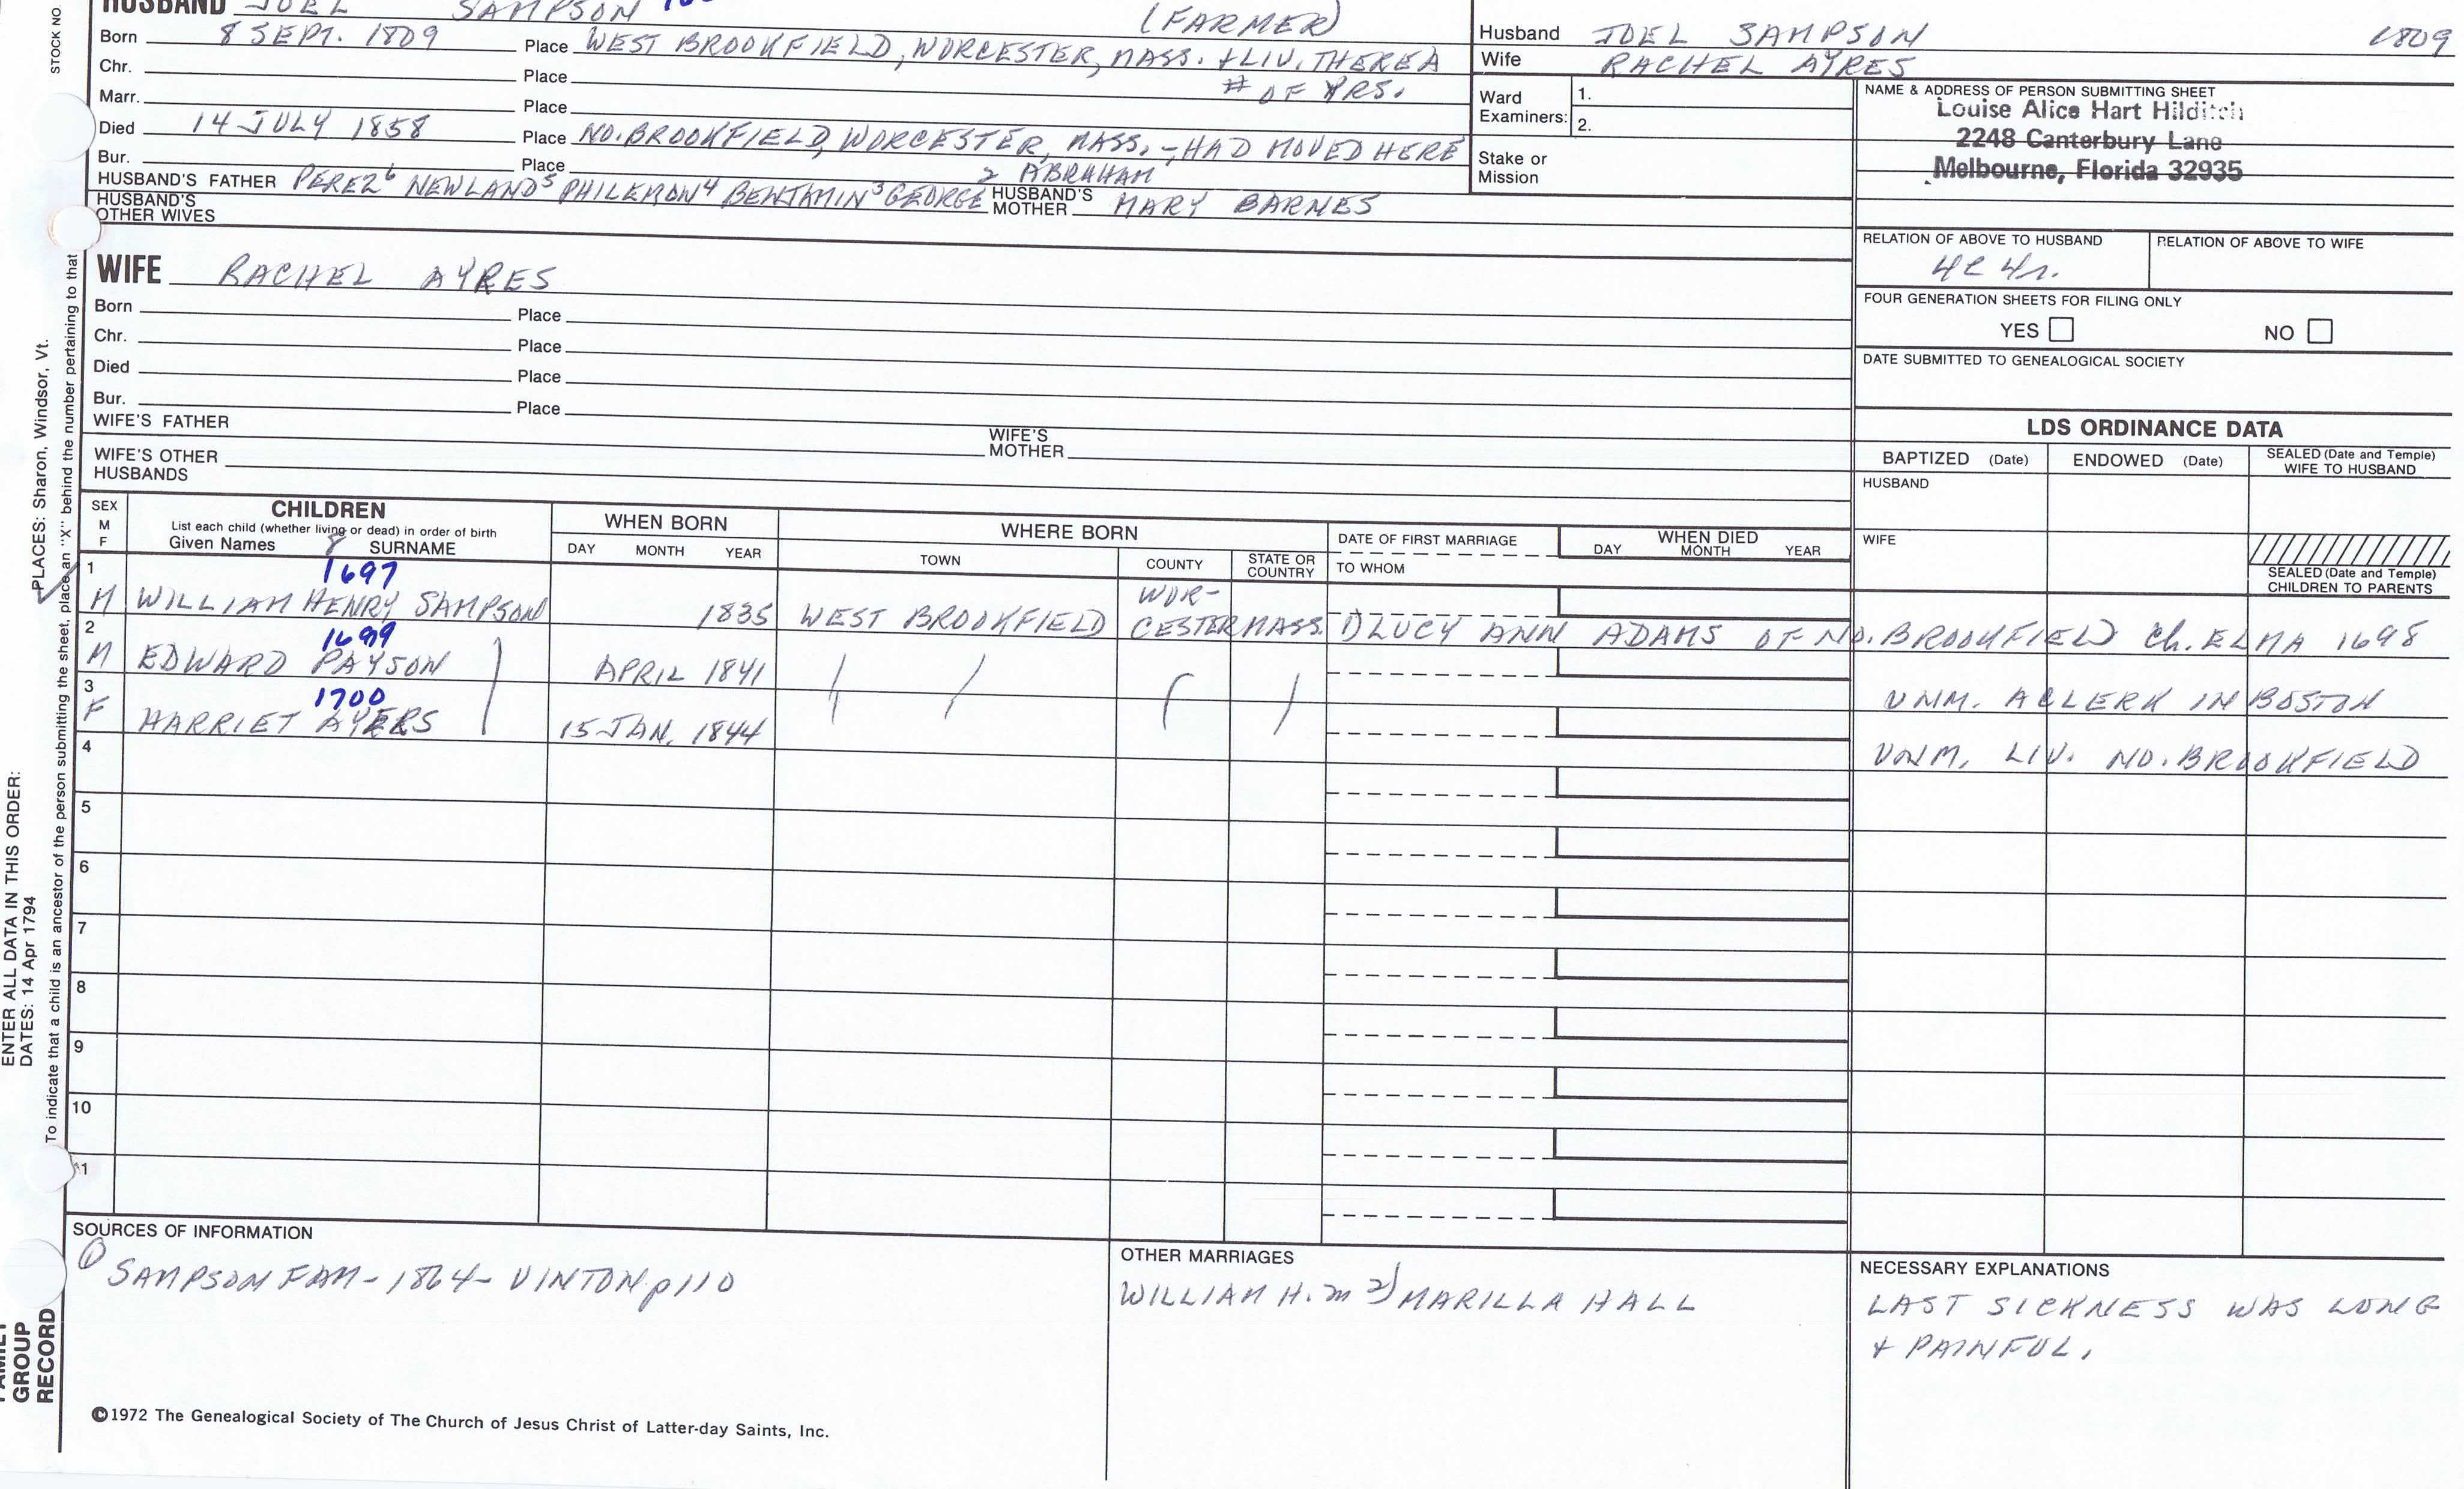 HUSBAND JOEL SAMPSON
(FARMER)
Born 8 SEPT. 1809 Place WEST BROOKFIELD, WORCESTER, MASS. + LIV. THERE A
# OF YRS.
Chr. Place
Marr. Place
Died 14 JULY 1858 Place NO. BROOKFIELD, WORCESTER, MASS. - HAD MOVED HERE
Bur. Place
HUSBAND'S FATHER PEREZ6 NEWLAND5 PHILEMON4 BENJAMIN3 GEORGE 2 ABRAHAM HUSBAND'S MOTHER MARY BARNES
HUSBAND'S OTHER WIVES
Husband JOEL SAMPSON 1809
Wife RACHEL AYRES
Ward Examiners: 1.
2.
Stake or Mission
NAME & ADDRESS OF PERSON SUBMITTING SHEET
Louise Alice Hart Hilditch
2248 Canterbury Lane
Melbourne, Florida 32935
RELATION OF ABOVE TO HUSBAND RELATION OF ABOVE TO WIFE
4C 4r.
FOUR GENERATION SHEETS FOR FILING ONLY
YES NO
DATE SUBMITTED TO GENEALOGICAL SOCIETY
WIFE RACHEL AYRES
Born Place
Chr. Place
Died Place
Bur. Place
WIFE'S FATHER WIFE'S MOTHER
WIFE'S OTHER HUSBANDS
LDS ORDINANCE DATA
BAPTIZED (Date) ENDOWED (Date) SEALED (Date and Temple) WIFE TO HUSBAND
HUSBAND
WIFE
SEALED (Date and Temple) CHILDREN TO PARENTS
SEX M F
CHILDREN
List each child (whether living or dead) in order of birth
Given Names 8 SURNAME
WHEN BORN
DAY MONTH YEAR
WHERE BORN
TOWN COUNTY STATE OR COUNTRY
DATE OF FIRST MARRIAGE
TO WHOM
WHEN DIED
DAY MONTH YEAR
1 1697
M WILLIAM HENRY SAMPSON 1835 WEST BROOKFIELD WOR-CESTER MASS. 1) LUCY ANN ADAMS OF NO. BROOKFIELD Ch. ELMA 1698
2 1699
M EDWARD PAYSON APRIL 1841 UNM. A CLERK IN BOSTON
3 1700
F HARRIET AYERS 15 JAN. 1844 UNM. LIV. NO. BROOKFIELD
4
5
6
7
8
9
10
11
SOURCES OF INFORMATION
① SAMPSON FAM - 1864 - VINTON p110
OTHER MARRIAGES
WILLIAM H. m 2) MARILLA HALL
NECESSARY EXPLANATIONS
LAST SICKNESS WAS LONG
+ PAINFUL.
©1972 The Genealogical Society of The Church of Jesus Christ of Latter-day Saints, Inc.
STOCK NO.
PLACES: Sharon, Windsor, Vt.
To indicate that a child is an ancestor of the person submitting the sheet, place an "X" behind the number pertaining to that
ENTER ALL DATA IN THIS ORDER:
DATES: 14 Apr 1794
FAMILY
GROUP
RECORD